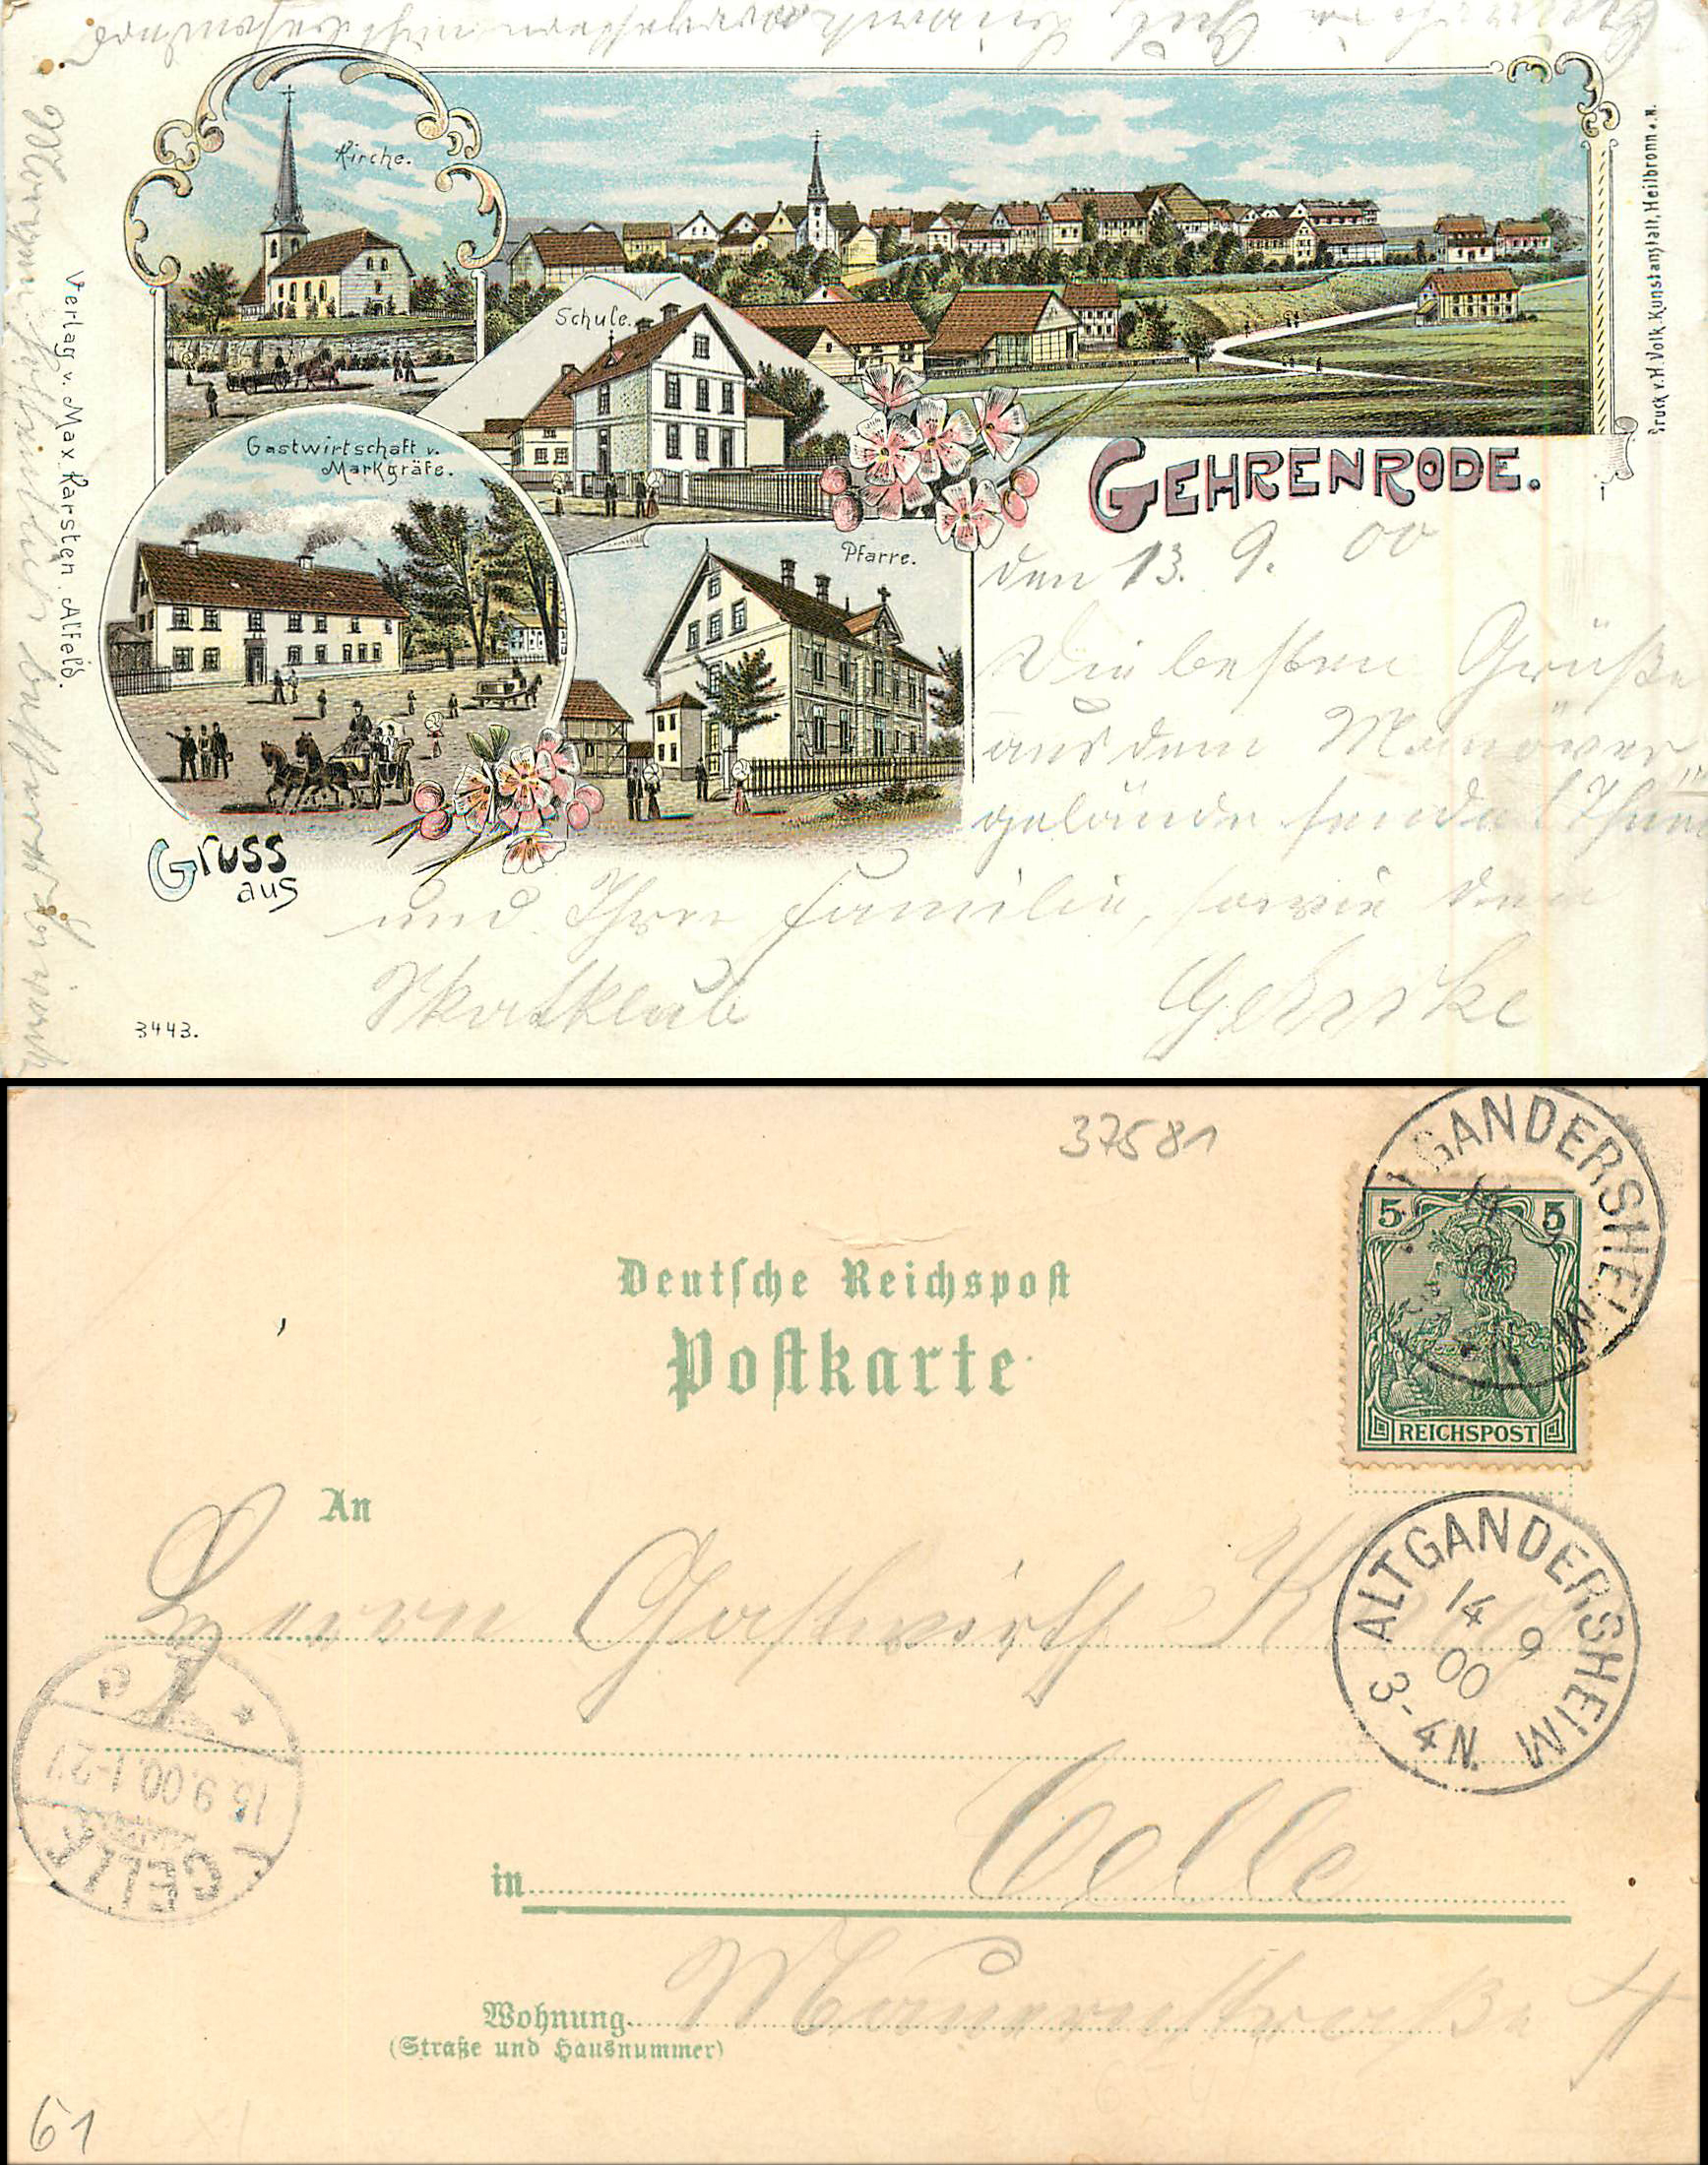 Kirche.
Schule.
Gastwirtschaft v.
Markgräfe.
Pfarre.
GEHRENRODE.
Gruss
aus
Verlag v. Max Karsten. Alfeld.
Druck v. H. Volk. Kunstanstalt, Heilbronn a. N.
3443.
den 13. 9. 00
Die besten Grüße
aus dem Manöver
gelände sendet Ihnen
und Ihrer Familie, sowie dem
Skatklub
37581
GANDERSHEIM
Deutsche Reichspost
Postkarte
5 5
REICHSPOST
An
Herrn Gastwirth
ALTGANDERSHEIM
14 9
00
3-4 N.
CELLE
15.9.00.1-2
in Celle
Wohnung Mauernstraße 4
(Straße und Hausnummer)
61